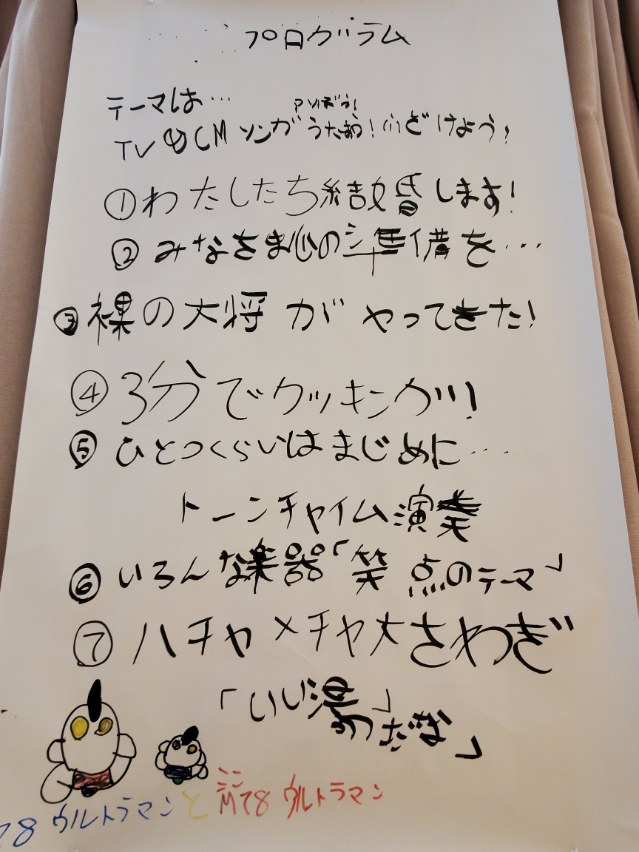 プログラム
テーマは…
TVのCMソングがうたあり！ハどけよう！
①わたしたち結婚します！
②みなさま心の準備を…
③裸の大将がやってきた！
④3分でクッキング！！
⑤ひとつくらいはまじめに…
トーンチャイム演奏
⑥いろんな楽器「笑点のテーマ」
⑦ハチャメチャ大さわぎ
「いい湯だな」
78 ウルトラマンとミニM78 ウルトラマン